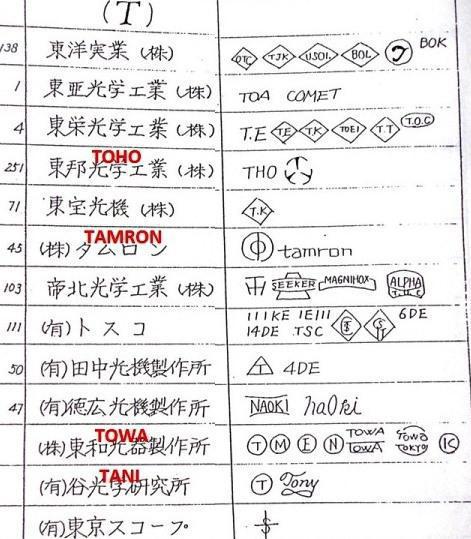 (T)
138 東洋実業(株) OTC TJK USOL BOL T BOK
1 東亜光学工業(株) TOA COMET
4 東栄光学工業(株) T.E T.E T.K TOEI T.T T.O.C
TOHO
251 東邦光学工業(株) THO
71 東宝光機(株) T.K
TAMRON
45 (株)タムロン tamron
103 帝北光学工業(株) TH SEEKER MAGNIHOX ALPHA
111 (有)トスコ 111KE 1E111 6DE
14DE .TSC
50 (有)田中光機製作所 T 4DE
47 (有)徳広光機製作所 NAOKI naoki
TOWA
(株)東和光器製作所 T M E N TOWA TOWA TOWA TOKYO IC
TANI
(有)谷光学研究所 T Tony
(有)東京スコープ